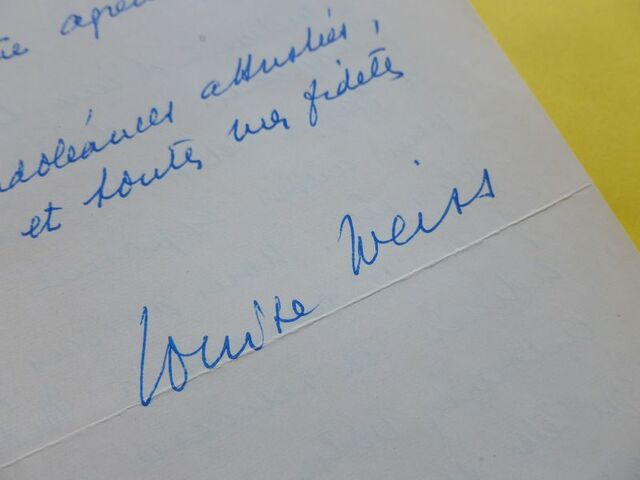 agré
condoléances attristées,
et toutes mes fidèles
Louise Weiss